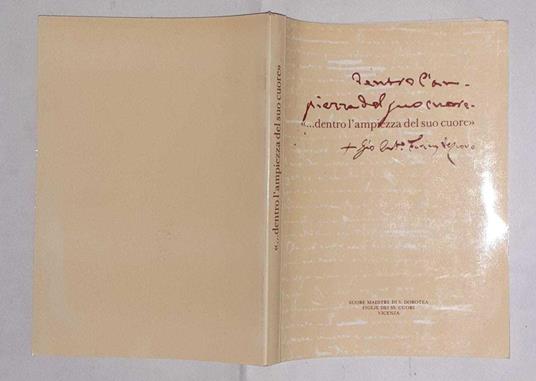 «...dentro l'ampiezza del suo cuore»
dentro l'am-
piezza del suo cuore.
«...dentro l'ampiezza del suo cuore»
+ Gio Ant.º Farina Vescovo
SUORE MAESTRE DI S. DOROTEA
FIGLIE DEI SS. CUORI
VICENZA